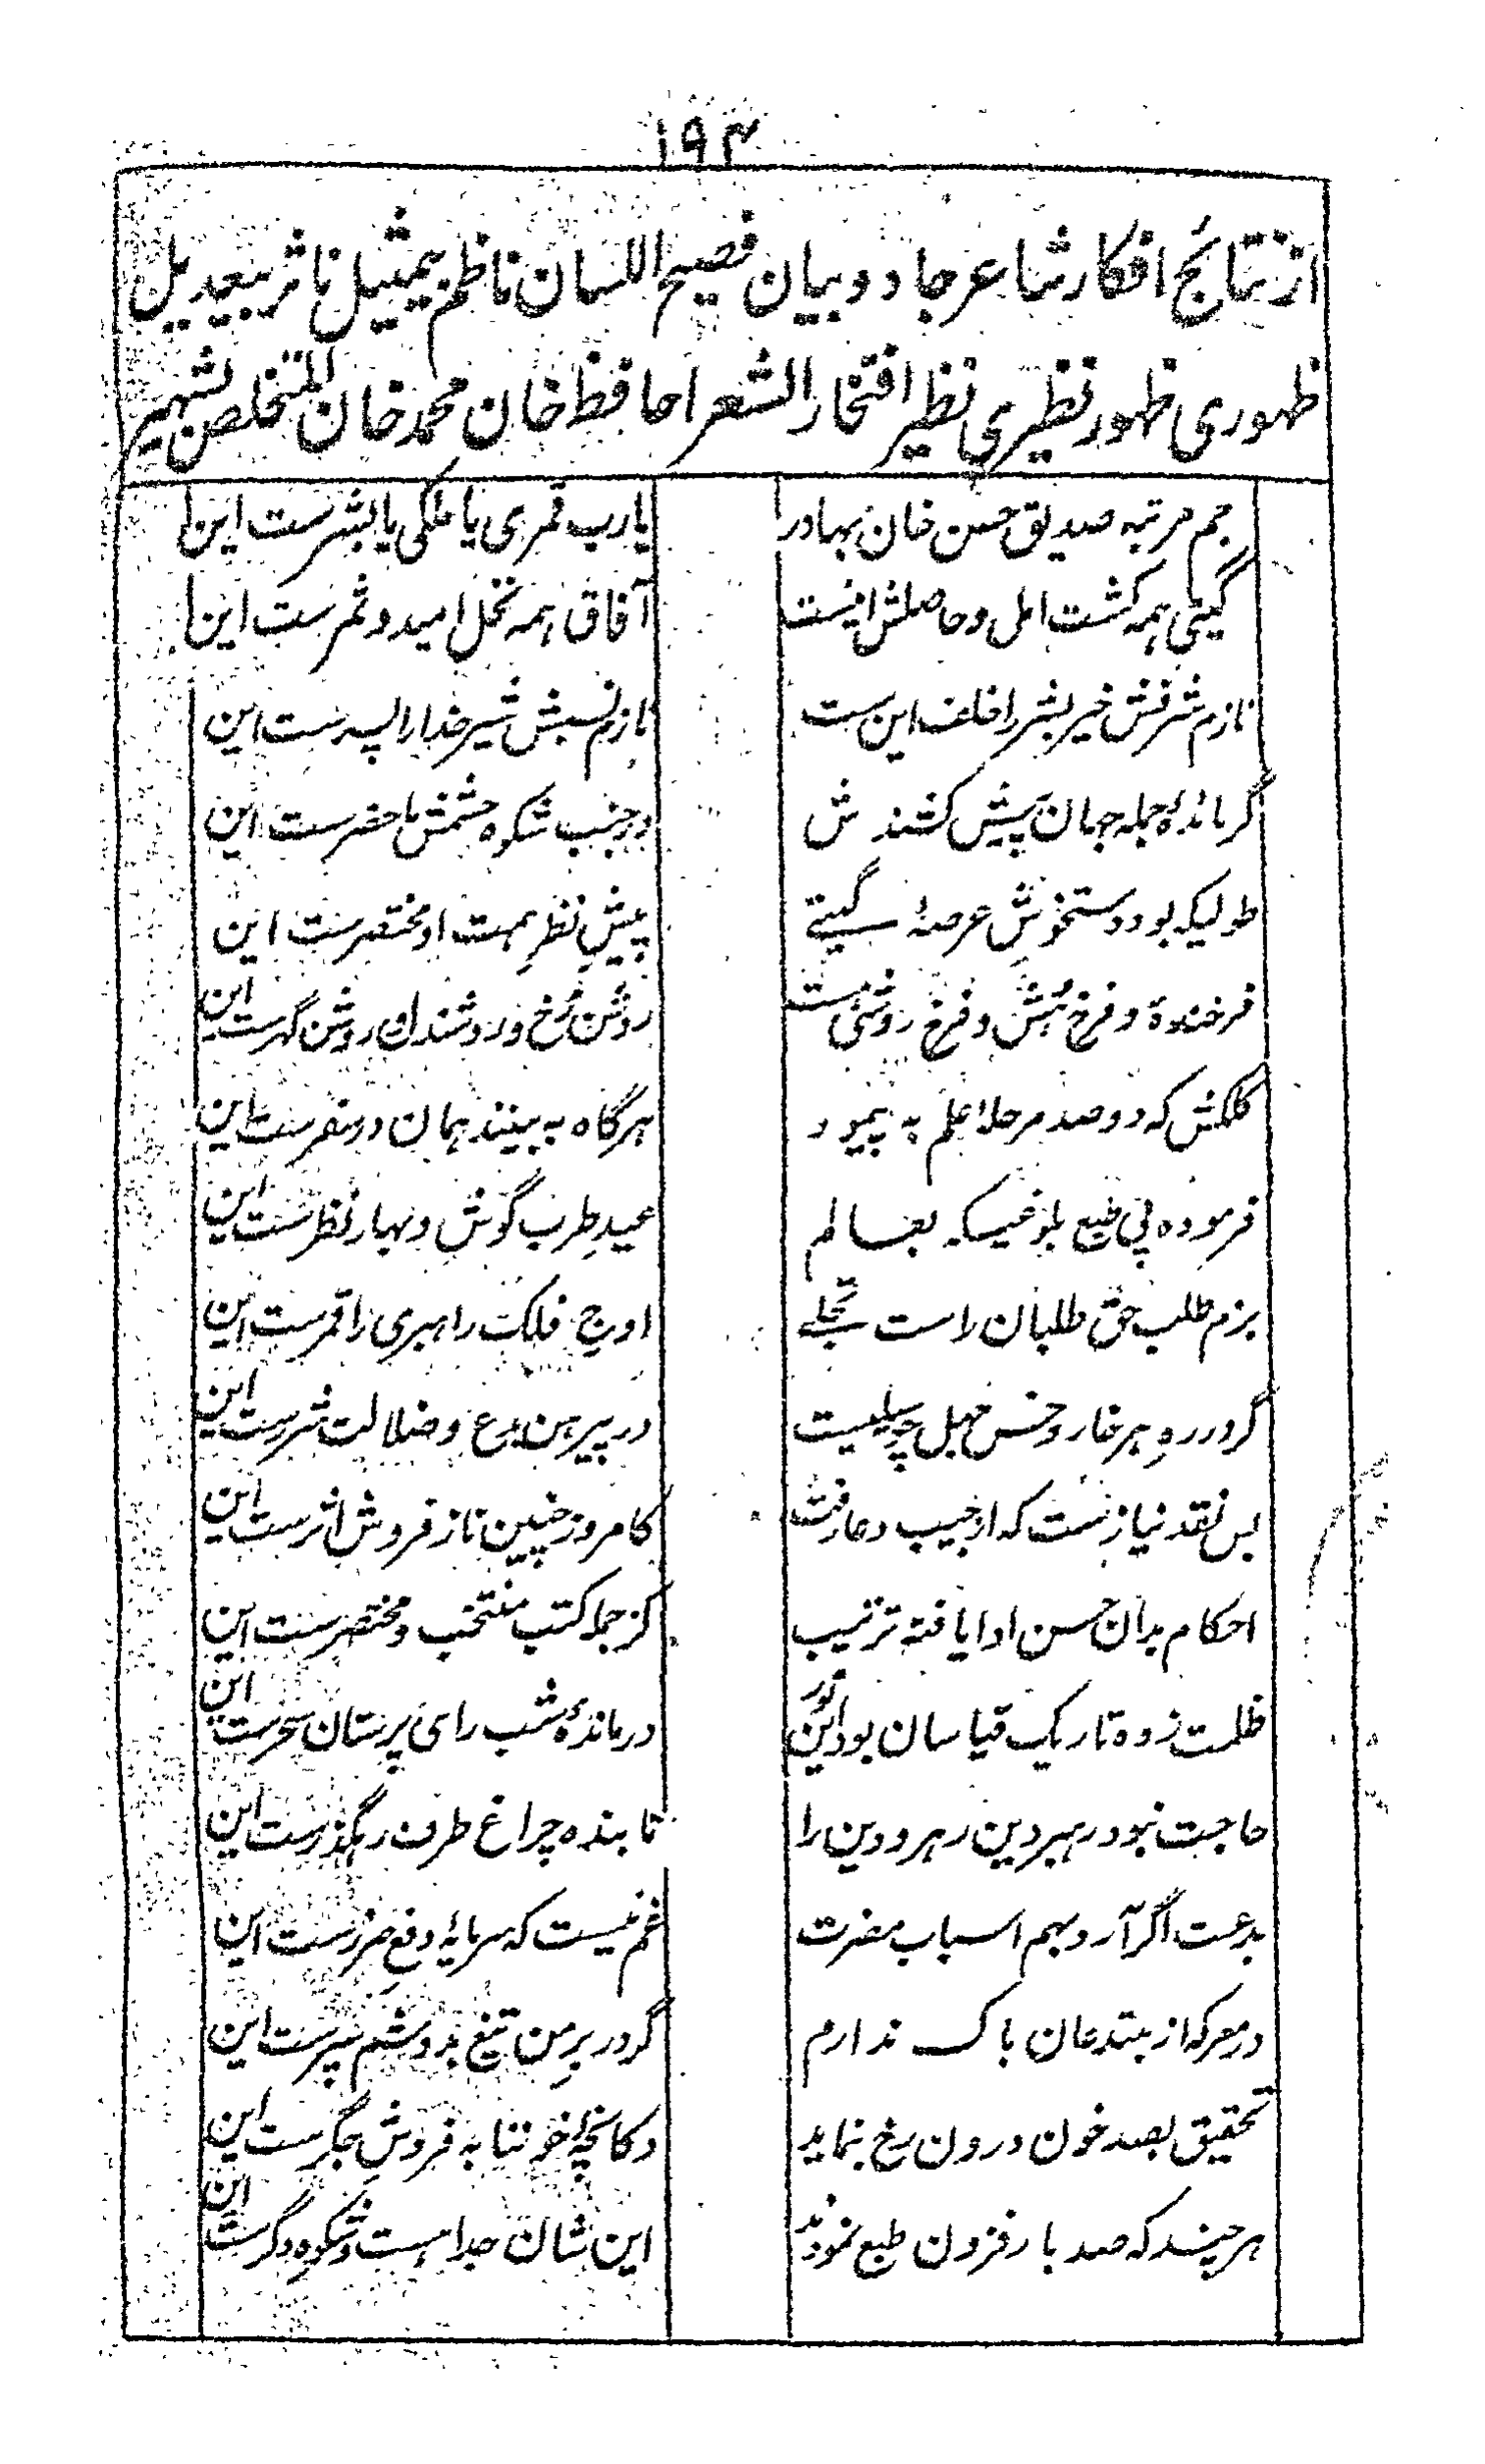 ۱۹۴
از نتائج افکار شاعر جادو بیان فصیح اللسان ناظم بیمثیل ناثر بیعدیل
ظهوری ظهور نظیری نظیر افتخار الشعرا حافظ خان محمد خان المتخلص بشهیر
جم مرتبه صدیق حسن خان بهادر یارب قمری یا ملکی یا بشرست این
گیتی همه کشت امل و حاصلش اینست آفاق همه نخل امید و ثمرست این
نازم شرفش خیر بشر را خلف این ست نازم نسبش شیر خدا را پسرست این
گر مائدهٔ جمله جهان پیش کشندش در جنب شکوه حشمتش ماحضرست این
طولیکه بود دستخوش عرصهٔ گیتے پیشِ نظرِ همت او مختصرست این
فرخنده و فرخ منش و فرخ روشنی ست روشن رُخ و روشندل و روشن گهرست این
کلکش که دو صد مرحلهٔ علم به پیمود هرگاه به بینند همان در سفرست این
فرموده پی طبع بلوغیکه بعالم عیدِ طرب گوش و بهار نظرست این
بزم طلب حق طلبان راست تجلے اوج فلک راهبری را قمرست این
گر در رهِ هر خار و خس جهل چو سیلیست در پیرهن بدع و ضلالت شررست این
بس نقد نیازست که از جیب دعا رفت کامروز چنین ناز فروش اثرست این
احکام بدان حسن ادا یافته ترتیب کز جمله کتب منتخب و مختصرست این
ظلمت زده تاریک قیاسان بود این نور درماندهٔ شب رای پرستان سحرست این
حاجت نبود رهبر دین رهرو دین را تابنده چراغ طرف رهگذرست این
بدعت اگر آرد بهم اسباب مضرت غم نیست که سرمایهٔ دفعِ ضررست این
در معرکه از مبتدعان باک ندارم گر در برِ من تیغ بدوشم سپرست این
تحقیق بصد خون درون رخ بنماید دکانچهٔ خوننابه فروشِ جگرست این
هر چند که صد بار فزون طبع نمودند این شان جدا هست و شکوهِ دگرست این